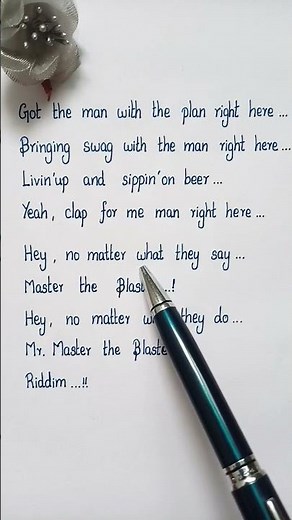 Got the man with the plan right here ...
Bringing swag with the man right here ...
Livin'up and sippin'on beer ...
Yeah, clap for me man right here ...
Hey, no matter what they say ...
Master the Blast ...!
Hey, no matter they do ...
Mr. Master the Blaste
Riddim ...!!